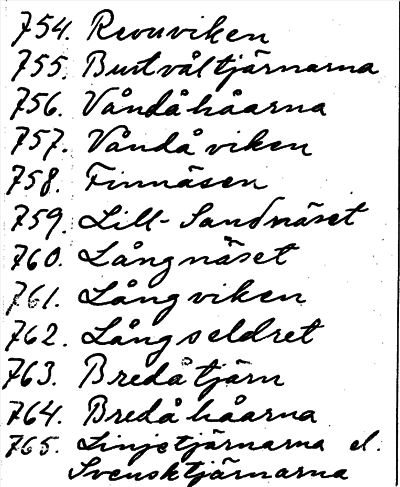 754. Revuviken
755. Burtvåltjärnarna
756. Våndåhåarna
757. Våndåviken
758. Finnäsen
759. Lill-Sandnäset
760. Långnäset
761. Långviken
762. Långseldret
763. Bredåtjärn
764. Bredåhåarna
765. Linjetjärnarna el.
Svensktjärnarna